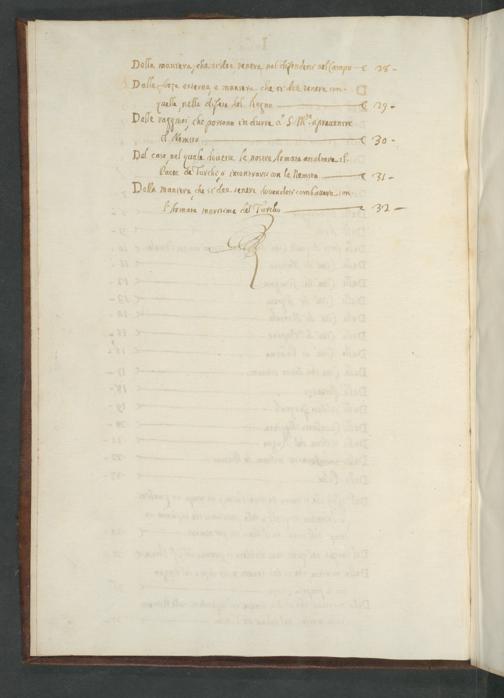 Della maniera, che si dee tenere nel difendere nel Campo — c 28 -
Delle forze esterne, e maniera che si dee tenere con
quelle, nelle difese del Regno — c 29 -
Delle raggioni, che possono indurre a S. M.tà a prevenire
il Nemico — c 30 -
Del caso, nel quale dovera le nostre Armate assaltare il
Paese de Turchi, o incontrarsi con la Nemica — c 31 -
Della maniera, che si dee tenere dovendosi combattere con
l'Armata maritima del Turcho — c 32 -